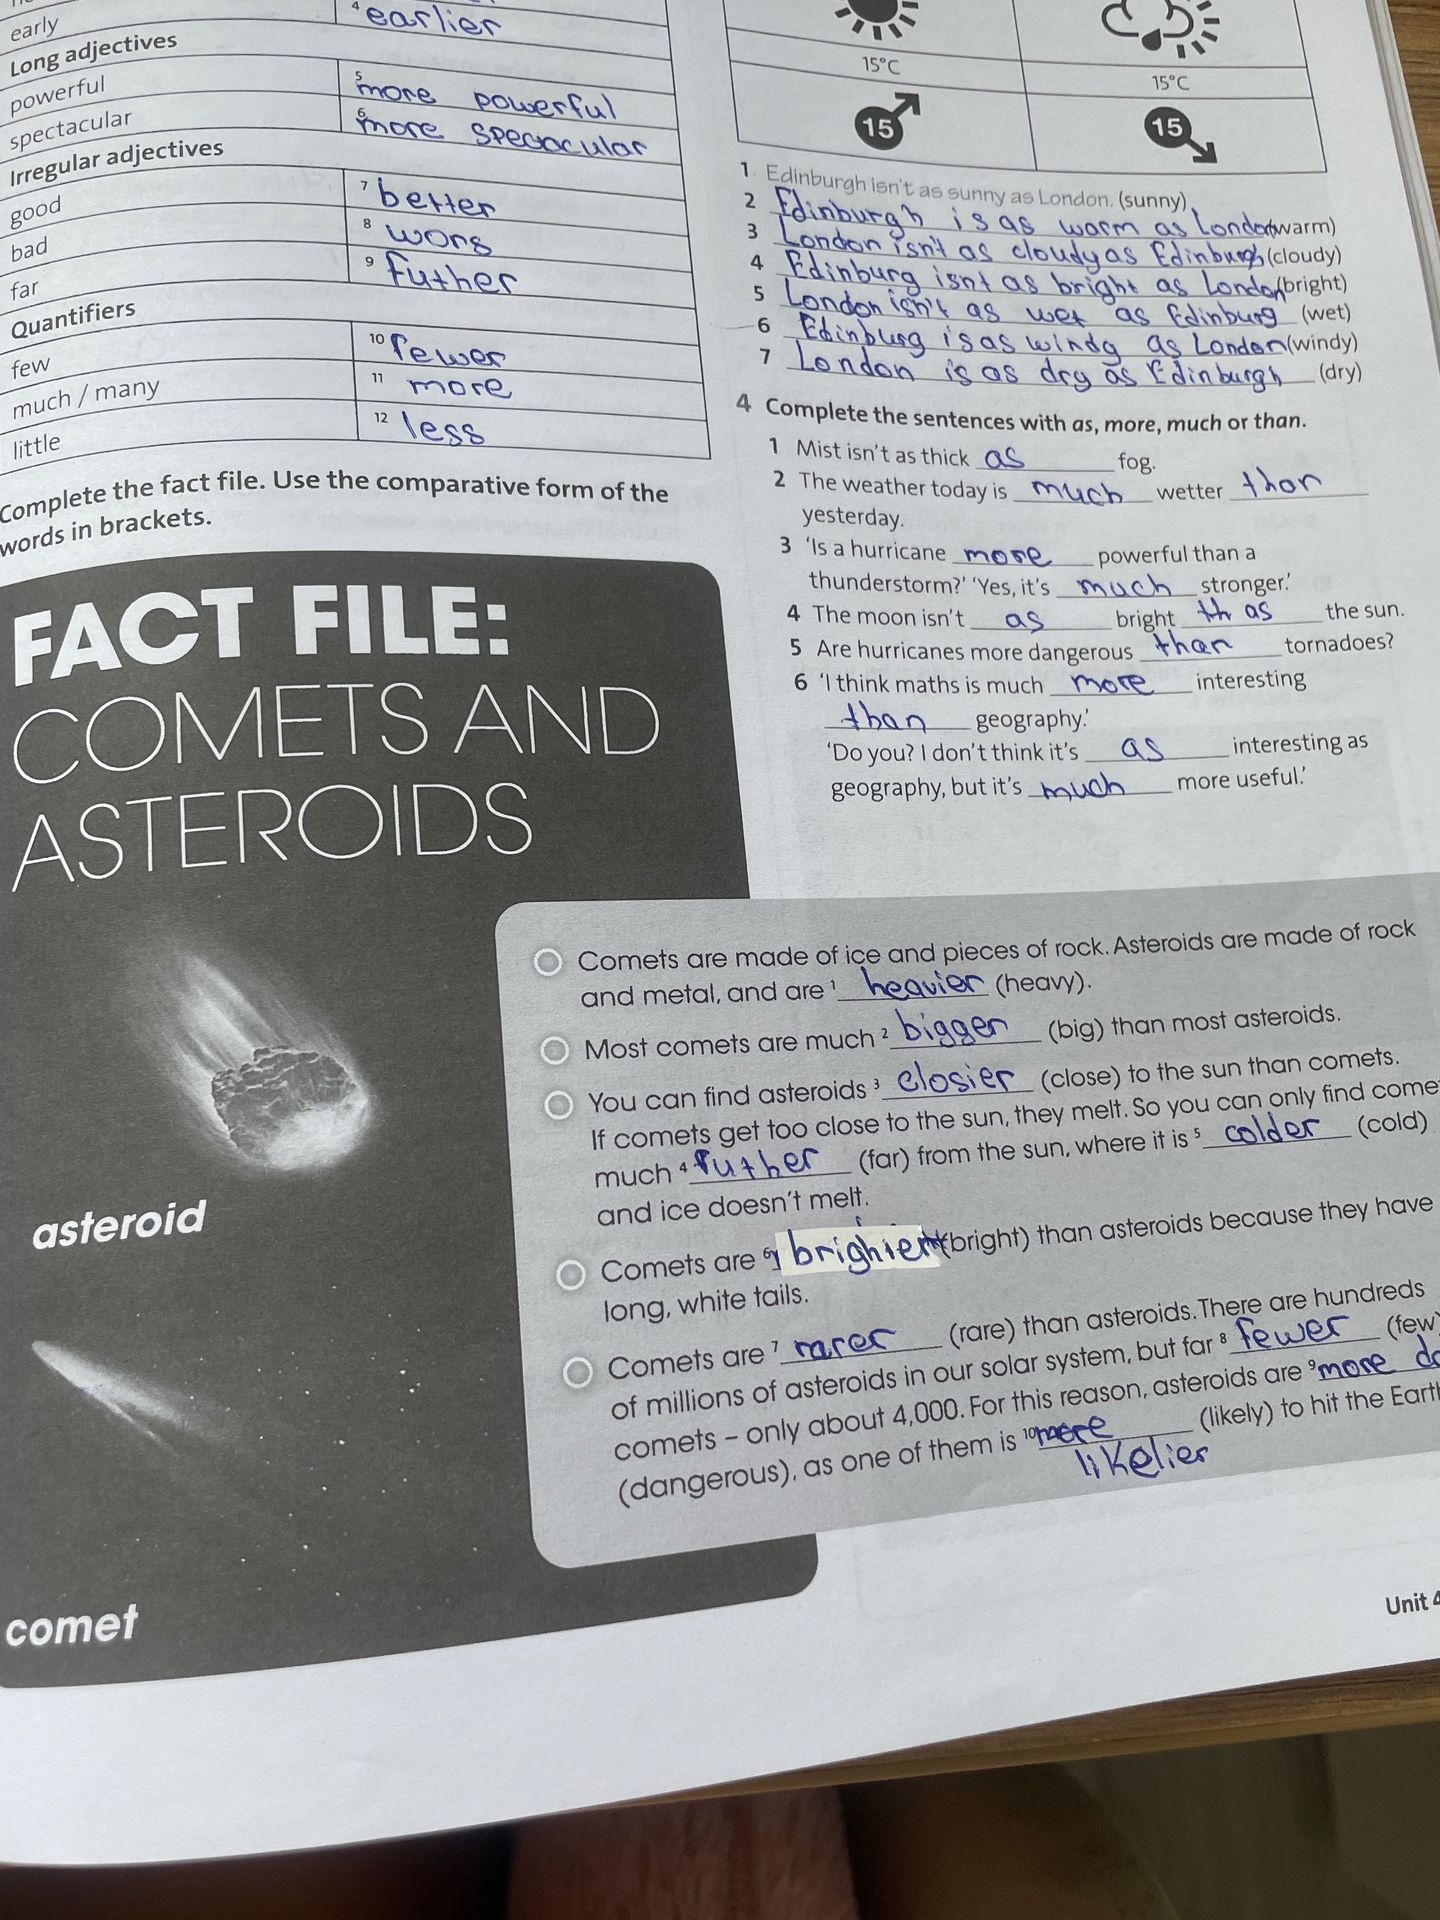 early
4 earlier
Long adjectives
powerful
5 more powerful
spectacular
6 more specacular
Irregular adjectives
good
7 better
bad
8 wors
far
9 futher
Quantifiers
few
10 fewer
much / many
11 more
little
12 less
Complete the fact file. Use the comparative form of the
words in brackets.
FACT FILE:
COMETS AND
ASTEROIDS
asteroid
comet
15°C
15°C
15
15
1 Edinburgh isn't as sunny as London. (sunny)
2 Edinburgh is as warm as London (warm)
3 London isn't as cloudy as Edinburgh (cloudy)
4 Edinburg isnt as bright as London (bright)
5 London isn't as wet as Edinburg (wet)
6 Edinburg is as windy as London (windy)
7 London is as dry as Edinburgh (dry)
4 Complete the sentences with as, more, much or than.
1 Mist isn't as thick as fog.
2 The weather today is much wetter than
yesterday.
3 'Is a hurricane more powerful than a
thunderstorm?' 'Yes, it's much stronger.'
4 The moon isn't as bright th as the sun.
5 Are hurricanes more dangerous than tornadoes?
6 'I think maths is much more interesting
than geography.'
'Do you? I don't think it's as interesting as
geography, but it's much more useful.'
Comets are made of ice and pieces of rock. Asteroids are made of rock
and metal, and are 1 heavier (heavy).
Most comets are much 2 bigger (big) than most asteroids.
You can find asteroids 3 closier (close) to the sun than comets.
If comets get too close to the sun, they melt. So you can only find come
much 4 futher (far) from the sun, where it is 5 colder (cold)
and ice doesn't melt.
Comets are 6 brighier (bright) than asteroids because they have
long, white tails.
Comets are 7 rarer (rare) than asteroids. There are hundreds
of millions of asteroids in our solar system, but far 8 fewer (few)
comets – only about 4,000. For this reason, asteroids are 9 more da
(dangerous), as one of them is 10 more (likely) to hit the Earth
likelier
Unit 4